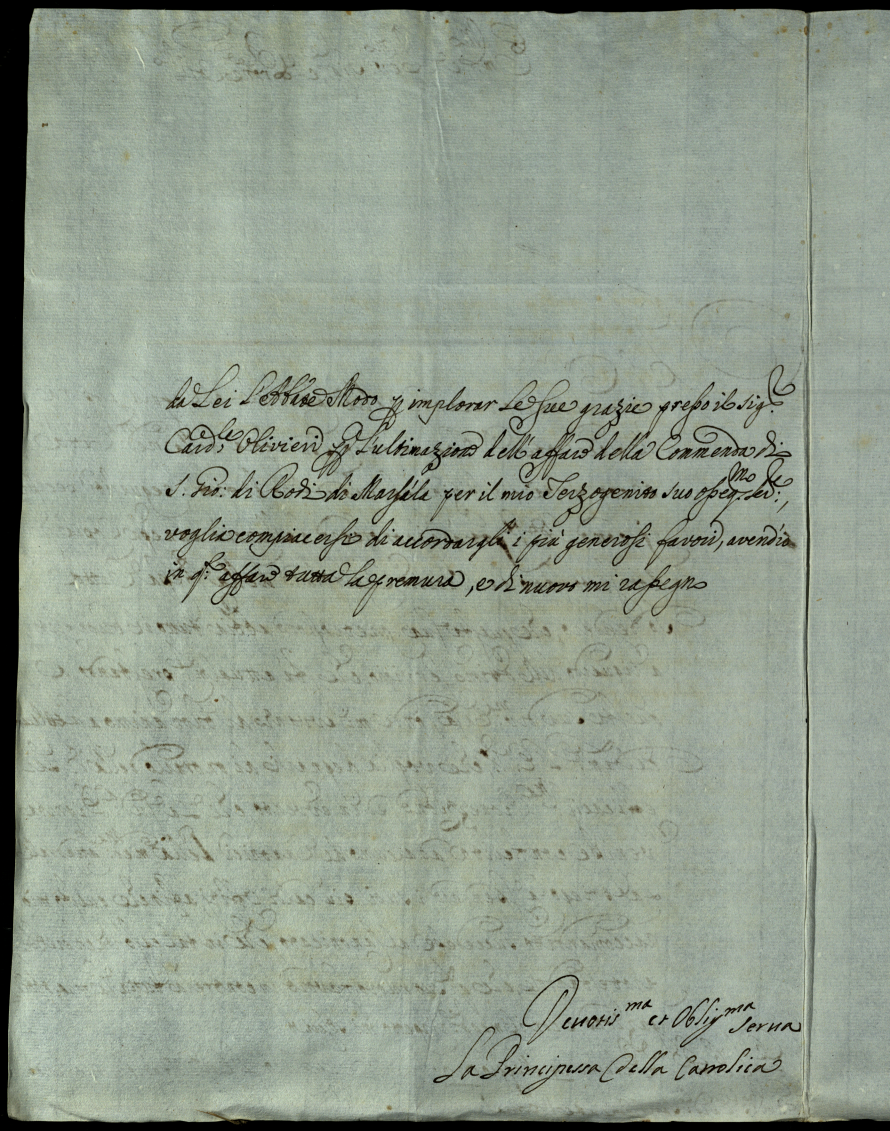 da Lei l'Abbate Modo p implorar le sue grazie presso il Sig.r
Card.le Olivieri p l'ultimazione dell'affare della Commenda di
S. Gio: di Rodi di Marsala per il mio Terzogenito suo osseq.mo Ser.e,
voglia compiacersi di accordargli i più generosi favori, avendo io
in q.to affare tutta la premura, e di nuovo mi rassegno
Devotis.ma et Oblig.ma Serva
La Principessa della Cattolica